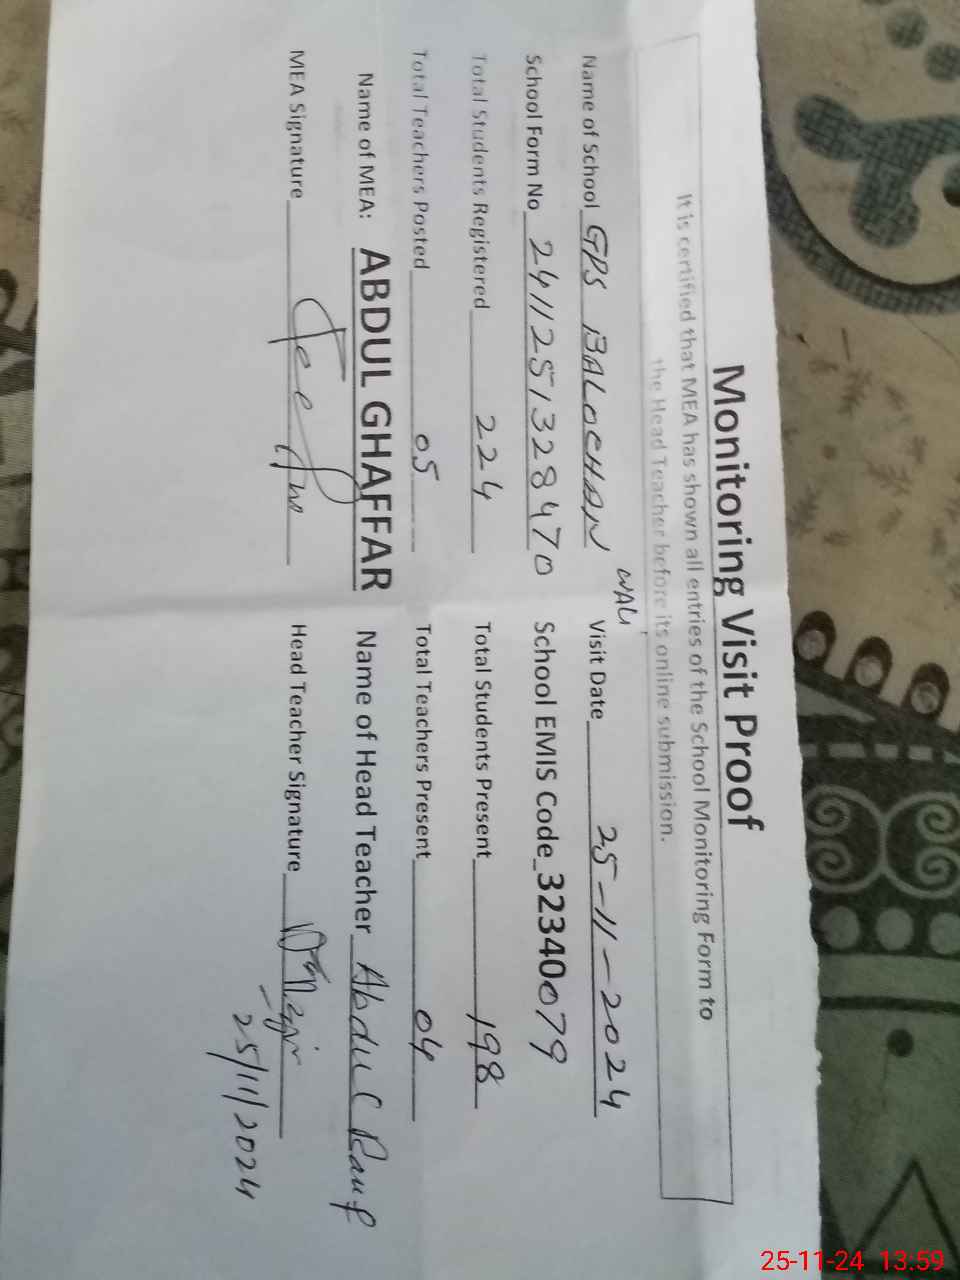 Monitoring Visit Proof
It is certified that MEA has shown all entries of the School Monitoring Form to
the Head Teacher before its online submission.
Name of School GPS BALOCHAN WALI Visit Date 25-11-2024
School Form No 2411251328470 School EMIS Code 32340079
Total Students Registered 224 Total Students Present 198
Total Teachers Posted 05 Total Teachers Present 04
Name of MEA: ABDUL GHAFFAR Name of Head Teacher Abdul Rauf
MEA Signature Head Teacher Signature
25/11/2024
25-11-24 13:59